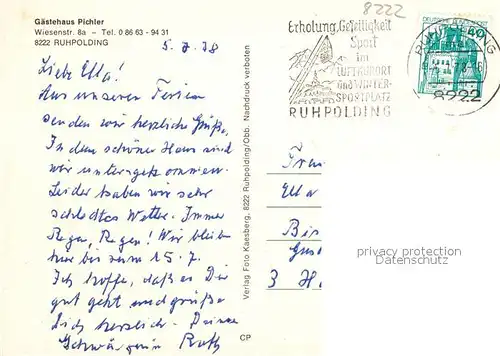 Gästehaus Pichler
Wiesenstr. 8a – Tel. 0 86 63 - 94 31
8222 RUHPOLDING
5. 7. 78
Liebe Ella!
Aus unseren Ferien
senden wir herzliche Grüße.
In dem schönen Haus sind
wir untergekommen.
Leider haben wir sehr
schlechtes Wetter. Immer
Regen, Regen! Wir bleiben
hier bis zum 15. 7.
Ich hoffe, daß es Dir
gut geht und grüße
Dich herzlich. Deine
Schwägerin Ruth
CP
Verlag Foto Kaesberg, 8222 Ruhpolding/Obb. Nachdruck verboten
8222
Erholung, Geselligkeit
Sport
im
LUFTKURORT
GROSSWINTER-
SPORTPLATZ
RUHPOLDING
DEUTSCHE
RUHPOLDING
8222
Frau
Ella
3 H
privacy protection
Datenschutz